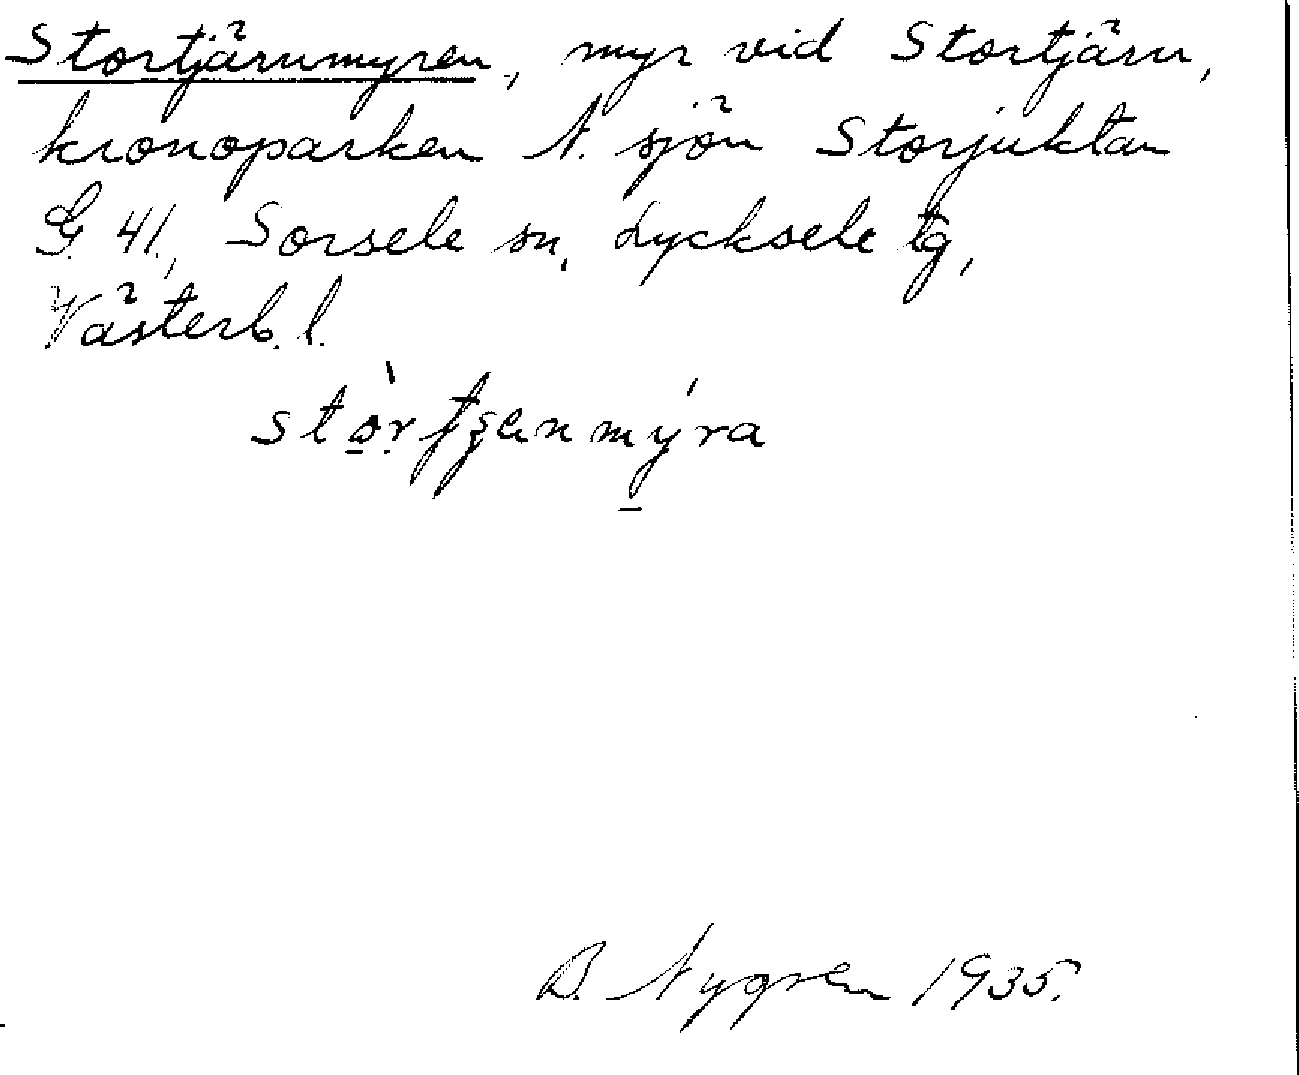 Stortjärnmyren, myr vid Stortjärn,
kronoparken N. sjön Storjuktan
G. 41., Sorsele sn, Lycksele tg,
Västerb. l.
B. Nygren 1935.